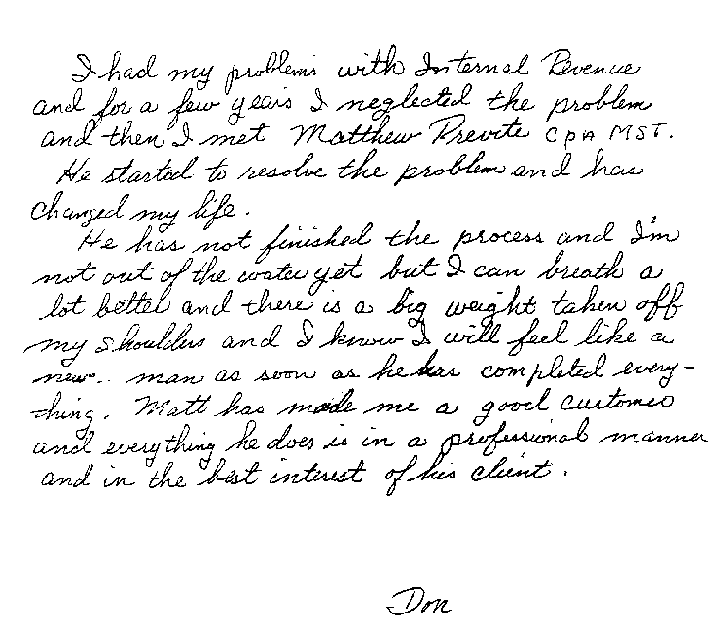 I had my problems with Internal Revenue
and for a few years I neglected the problem
and then I met Matthew Previte CPA MST.
He started to resolve the problem and has
changed my life.
He has not finished the process and I'm
not out of the water yet but I can breath a
lot better and there is a big weight taken off
my shoulders and I know I will feel like a
new.. man as soon as he has completed every-
thing. Matt has made me a good customer
and everything he does is in a professional manner
and in the best interest of his client.
Don